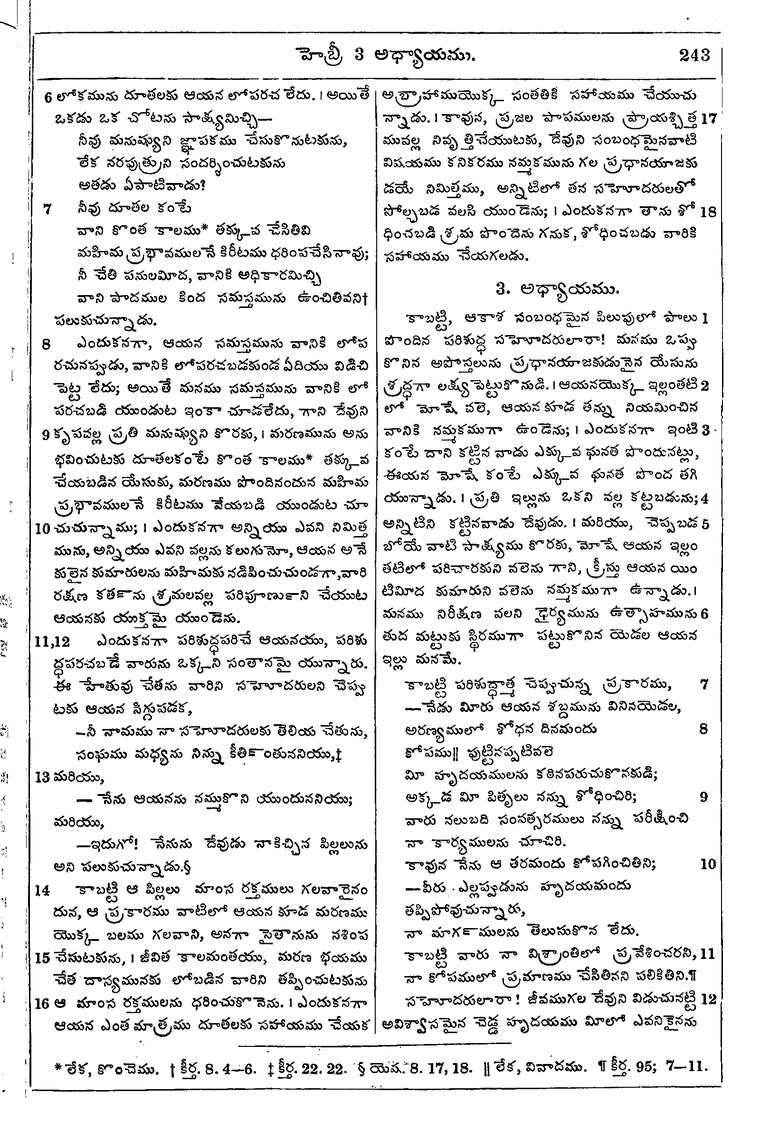 హెబ్రీ 3 అధ్యాయము. 243
6 లోకమును దూతలకు ఆయన లోపరచ లేదు. । అయితే
ఒకడు ఒక చోటను సాక్ష్యమిచ్చి—
నీవు మనుష్యుని జ్ఞాపకము చేసుకొనుటకును,
లేక నరపుత్రుని సందర్శించుటకును
అతడు ఏపాటివాడు?
7 నీవు దూతల కంటే
వాని కొంత కాలము* తక్కువ చేసితివి
మహిమ ప్రభావములనే కిరీటము ధరింపచేసినావు;
నీ చేతి పనులమీద, వానికి అధికారమిచ్చి
వాని పాదముల కింద సమస్తమును ఉంచితివని†
పలుకుచున్నాడు.
8 ఎందుకనగా, ఆయన సమస్తమును వానికి లోప
రచునప్పుడు, వానికి లోపరచబడకుండ ఏదియు విడిచి
పెట్ట లేదు; అయితే మనము సమస్తమును వానికి లో
పరచబడి యుండుట ఇంకా చూడలేదు, గాని దేవుని
9 కృపవల్ల ప్రతి మనుష్యుని కొరకు, । మరణమును అను
భవించుటకు దూతలకంటే కొంత కాలము* తక్కువ
చేయబడిన యేసుకు, మరణము పొందినందున మహిమ
ప్రభావములనే కిరీటము వేయబడి యుండుట చూ
10 చుచున్నాము; । ఎందుకనగా అన్నియు ఎవని నిమిత్త
మును, అన్నియు ఎవని వల్లను కలుగునో, ఆయన అనే
కులైన కుమారులను మహిమకు నడిపించుచుండగా,వారి
రక్షణ కర్తను శ్రమలవల్ల పరిపూర్ణుని చేయుట
ఆయనకు యుక్తమై యుండెను.
11,12 ఎందుకనగా పరిశుద్ధపరిచే ఆయనయు, పరిశు
ద్ధపరచబడే వారును ఒక్కని సంతానమై యున్నారు.
ఈ హేతువు చేతను వారిని సహోదరులని చెప్పు
టకు ఆయన సిగ్గుపడక,
—నీ నామము నా సహోదరులకు తెలియ చేతును,
సంఘము మధ్యను నిన్ను కీర్తింతుననియు,‡
13 మరియు,
— నేను ఆయనను నమ్ముకొని యుందుననియు;
మరియు,
—ఇదుగో! నేనును దేవుడు నాకిచ్చిన పిల్లలును
అని పలుకుచున్నాడు.§
14 కాబట్టి ఆ పిల్లలు మాంస రక్తములు గలవారైనం
దున, ఆ ప్రకారము వాటిలో ఆయన కూడ మరణము
యొక్క బలము గలవాని, అనగా సైతానును నశింప
15 చేసుటకును, । జీవిత కాలమంతయు, మరణ భయము
చేత దాస్యమునకు లోబడిన వారిని తప్పించుటకును
16 ఆ మాంస రక్తములను ధరించుకొనెను. । ఎందుకనగా
ఆయన ఎంత మాత్రము దూతలకు సహాయము చేయక
అబ్రాహాముయొక్క సంతతికి సహాయము చేయుచు
న్నాడు. । కావున, ప్రజల పాపములను ప్రాయశ్చిత్త 17
మువల్ల నివృత్తిచేయుటకు, దేవుని సంబంధమైనవాటి
విషయము కనికరము నమ్మకమును గల ప్రధానయాజకు
డయే నిమిత్తము, అన్నిటిలో తన సహోదరులతో
పోల్చబడ వలసి యుండెను; । ఎందుకనగా తాను శో 18
ధించబడి శ్రమ పొందెను గనుక, శోధించబడు వారికి
సహాయము చేయగలడు.
3. అధ్యాయము.
కాబట్టి, ఆకాశ సంబంధమైన పిలుపులో పాలు 1
పొందిన పరిశుద్ధ సహోదరులారా! మనము ఒప్పు
కొనిన అపోస్తలును ప్రధానయాజకుడునైన యేసును
శ్రద్ధగా లక్ష్యపెట్టుకొనుడి. । ఆయనయొక్క ఇల్లంతటి 2
లో మోషే వలె, ఆయనకూడ తన్ను నియమించిన
వానికి నమ్మకముగా ఉండెను; । ఎందుకనగా ఇంటి 3
కంటే దాని కట్టిన వాడు ఎక్కువ ఘనత పొందునట్లు,
ఈయన మోషే కంటే ఎక్కువ ఘనత పొంద తగి
యున్నాడు. । ప్రతి ఇల్లును ఒకని వల్ల కట్టబడును; 4
అన్నిటిని కట్టినవాడు దేవుడు. । మరియు, చెప్పబడ 5
బోయే వాటి సాక్ష్యము కొరకు, మోషే ఆయన ఇల్లం
తటిలో పరిచారకుని వలెను గాని, క్రీస్తు ఆయన యిం
టిమీద కుమారుని వలెను నమ్మకముగా ఉన్నాడు. ।
మనము నిరీక్షణ వలని ధైర్యమును ఉత్సాహమును 6
తుద మట్టుకు స్థిరముగా పట్టుకొనిన యెడల ఆయన
ఇల్లు మనమే.
కాబట్టి పరిశుద్ధాత్మ చెప్పుచున్న ప్రకారము, 7
—నేడు మీరు ఆయన శబ్దమును వినినయెడల,
అరణ్యములో శోధన దినమందు 8
కోపము|| పుట్టినప్పటివలె
మీ హృదయములను కఠినపరుచుకొనకుడి;
అక్కడ మీ పితృలు నన్ను శోధించిరి; 9
వారు నలుబది సంవత్సరములు నన్ను పరీక్షించి
నా కార్యములను చూచిరి.
కావున నేను ఆ తరమందు కోపగించితిని; 10
—వీరు ఎల్లప్పుడును హృదయమందు
తప్పిపోవుచున్నారు,
నా మార్గములను తెలుసుకొన లేదు.
కాబట్టి వారు నా విశ్రాంతిలో ప్రవేశించరని, 11
నా కోపములో ప్రమాణము చేసితినని పలికితిని.¶
సహోదరులారా! జీవముగల దేవుని విడుచునట్టి 12
అవిశ్వాసమైన చెడ్డ హృదయము మీలో ఎవనికైనను
* లేక, కొంచెము. † కీర్త. 8. 4—6. ‡ కీర్త. 22. 22. § యెష. 8. 17, 18. || లేక, వివాదము. ¶ కీర్త. 95; 7—11.